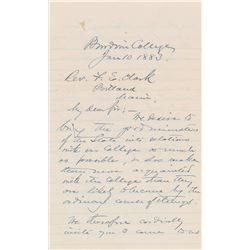 Bowdoin College,
Jan 10 1883.
Rev. F. E. Clark
Portland
Maine,
My dear Sir:- We desire to
bring the good ministers
of the State into relations
with our College as much
as possible, & also make
them more acquainted
with the College than they
are likely to become by the
ordinary course of things.
We therefore cordially
invite you to come to us